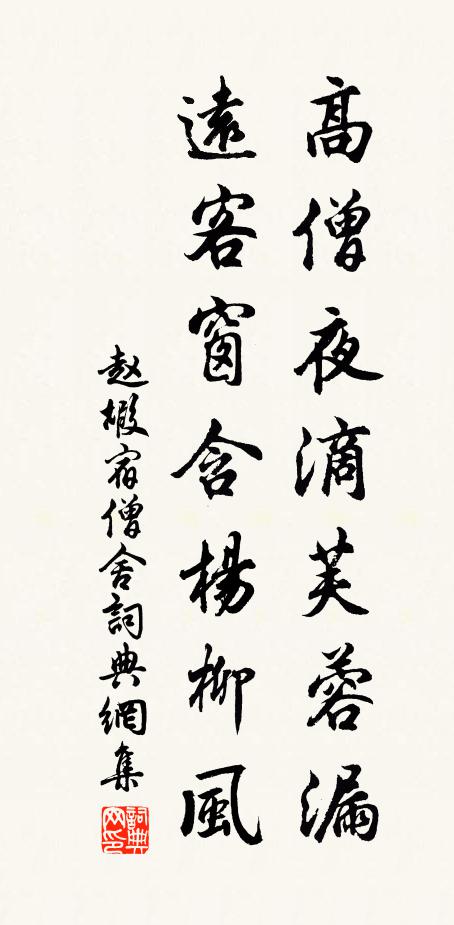 高僧夜滴芙蓉漏
遠客窗含楊柳風
赵嘏宿僧舍詞典網集
詞典网印